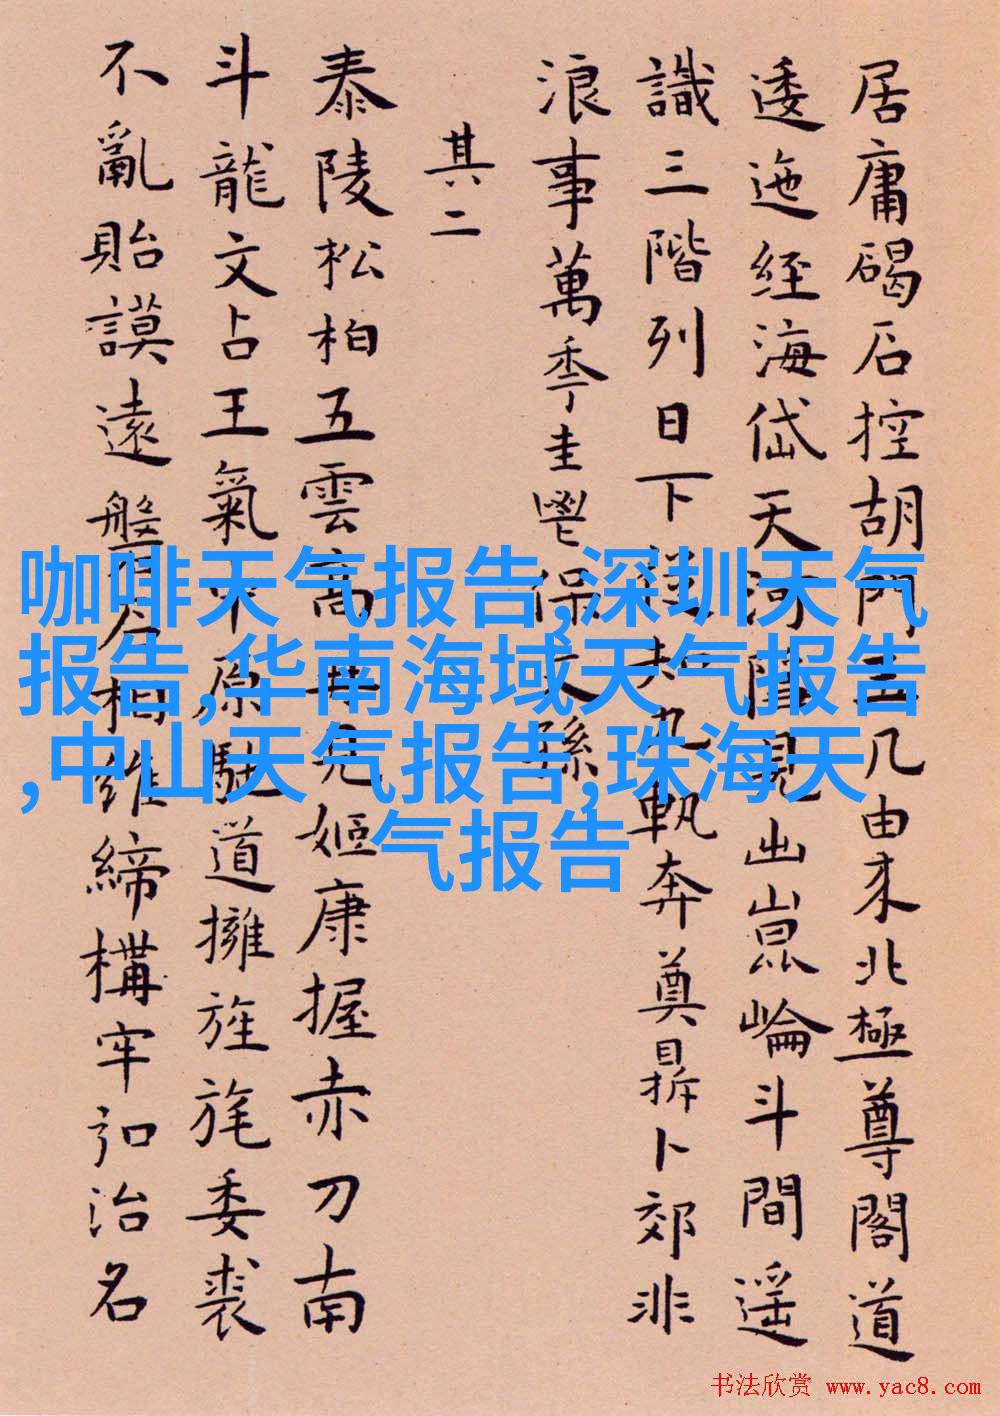 居庸碣石控胡門五几由来北極尊閣道
逶迤經海岱天河隱見出崑崙斗間遥
識三階列日下 九軌奔奠鼎卜郊非
浪事萬季圭鬯保文孫
其二
泰陵松柏五雲高再見姬康握赤刀南
斗龍文占王氣中原馳道擁旌旄委裘
不亂貽謨遠盤石相維締構牢 治名
咖啡天气报告,深圳天气
报告,华南海域天气报告
,中山天气报告,珠海天
气报告
书法欣赏 www.yac8.com